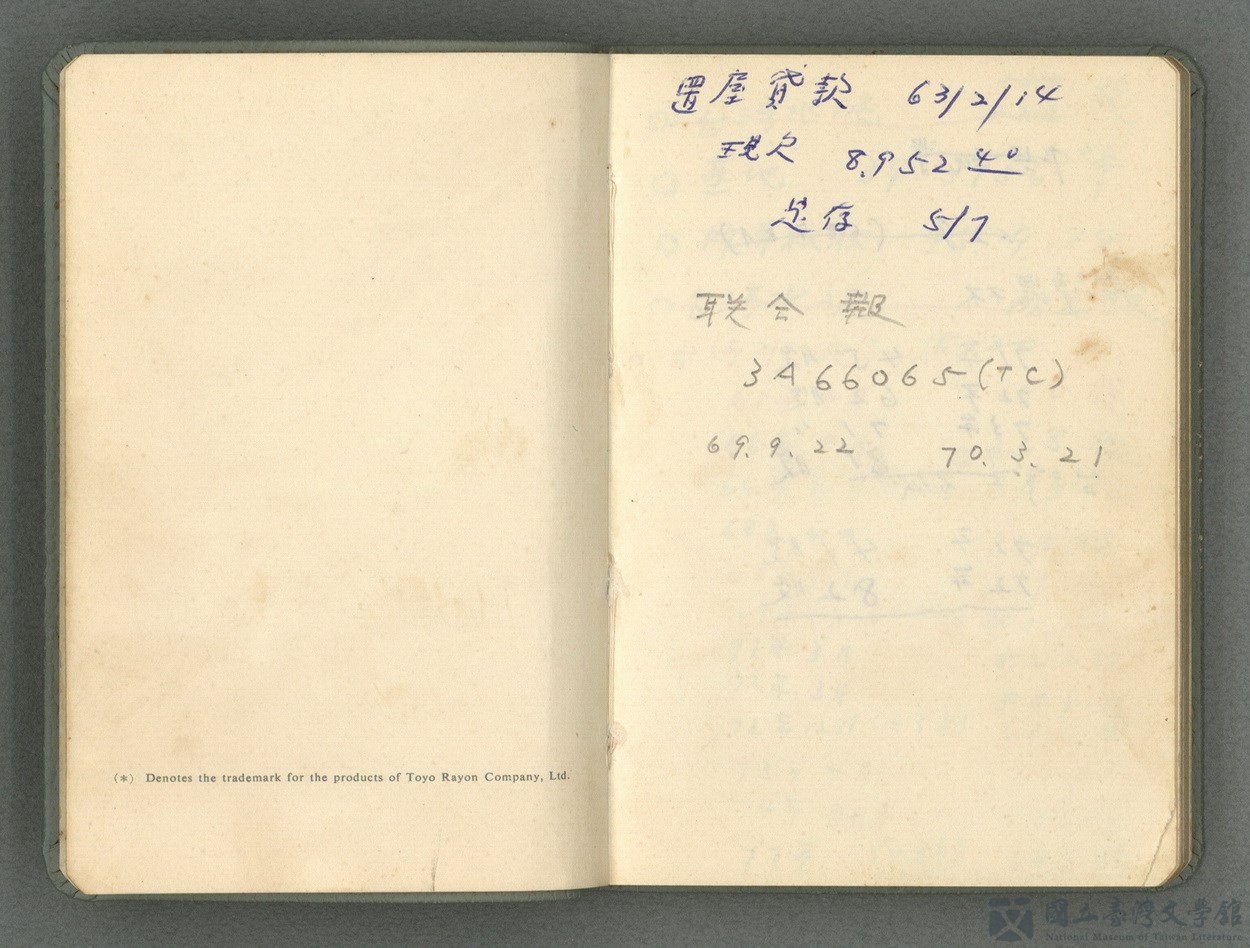 (*) Denotes the trademark for the products of Toyo Rayon Company, Ltd.
置屋貸款 63/2/14
現欠 8,952 40
定存 5/7
联合報
3A66065(TC)
69.9.22 70.3.21
國立臺灣文學館
National Museum of Taiwan Literature